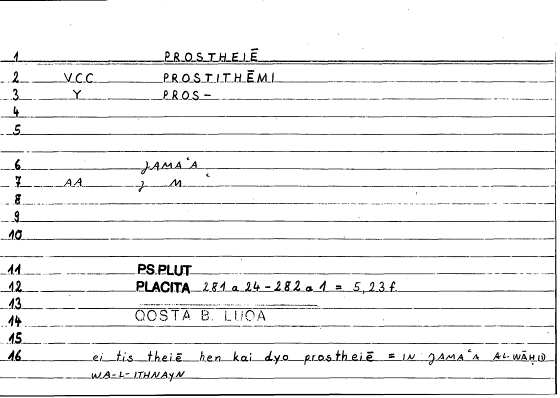 1 PROSTHEIĒ
2 VCC PROSTITHĒMI
3 Y PROS-
4
5
6 ȷAMAʿA
7 AA ȷ M ʿ
8
9
10
11 PS.PLUT
12 PLACITA 281 a 24-282 a 1 = 5,23 f.
13
14 QOSTA B. LUQA
15
16 ei tis theiē hen kai dyo prostheiē = IN ȷAMAʿA AL-WĀḤID
WA-L-ITHNAYN